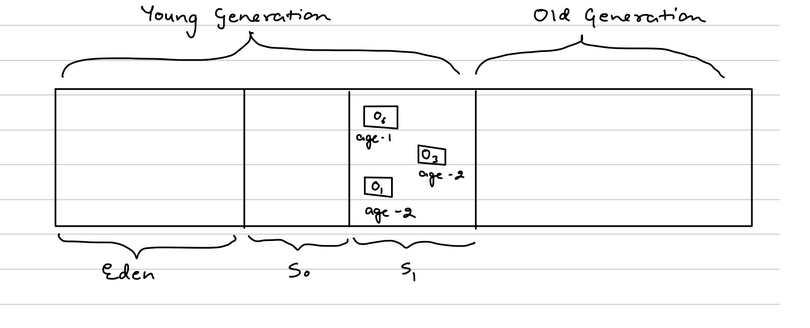 Young Generation
Old Generation
O₆
age-1
O₃
age-2
O₁
age-2
Eden
S₀
S₁